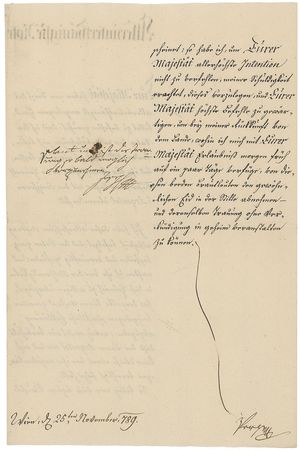 scheinet; so habe ich, um Eurer
Majestät allerhöchste Intention
nicht zu verfehlen, meiner Schuldigkeit
erachtet, dieses vorzulegen, und Eurer
Majestät höchste Befehle zu gewär-
tigen, um bey meiner Rückkunft von
dem Lande, wohin ich mich mit Eurer
Majestät Erlaubniß morgen früh
auf ein paar Tage verfüge, von die-
sen beeden Brautleuten den gewöhn-
lichen Eid in der Stille abnehmen
und derenselben Trauung ohne Ver-
kündigung in geheim veranstalten
zu können.
Wien, d. 25ten November 789.